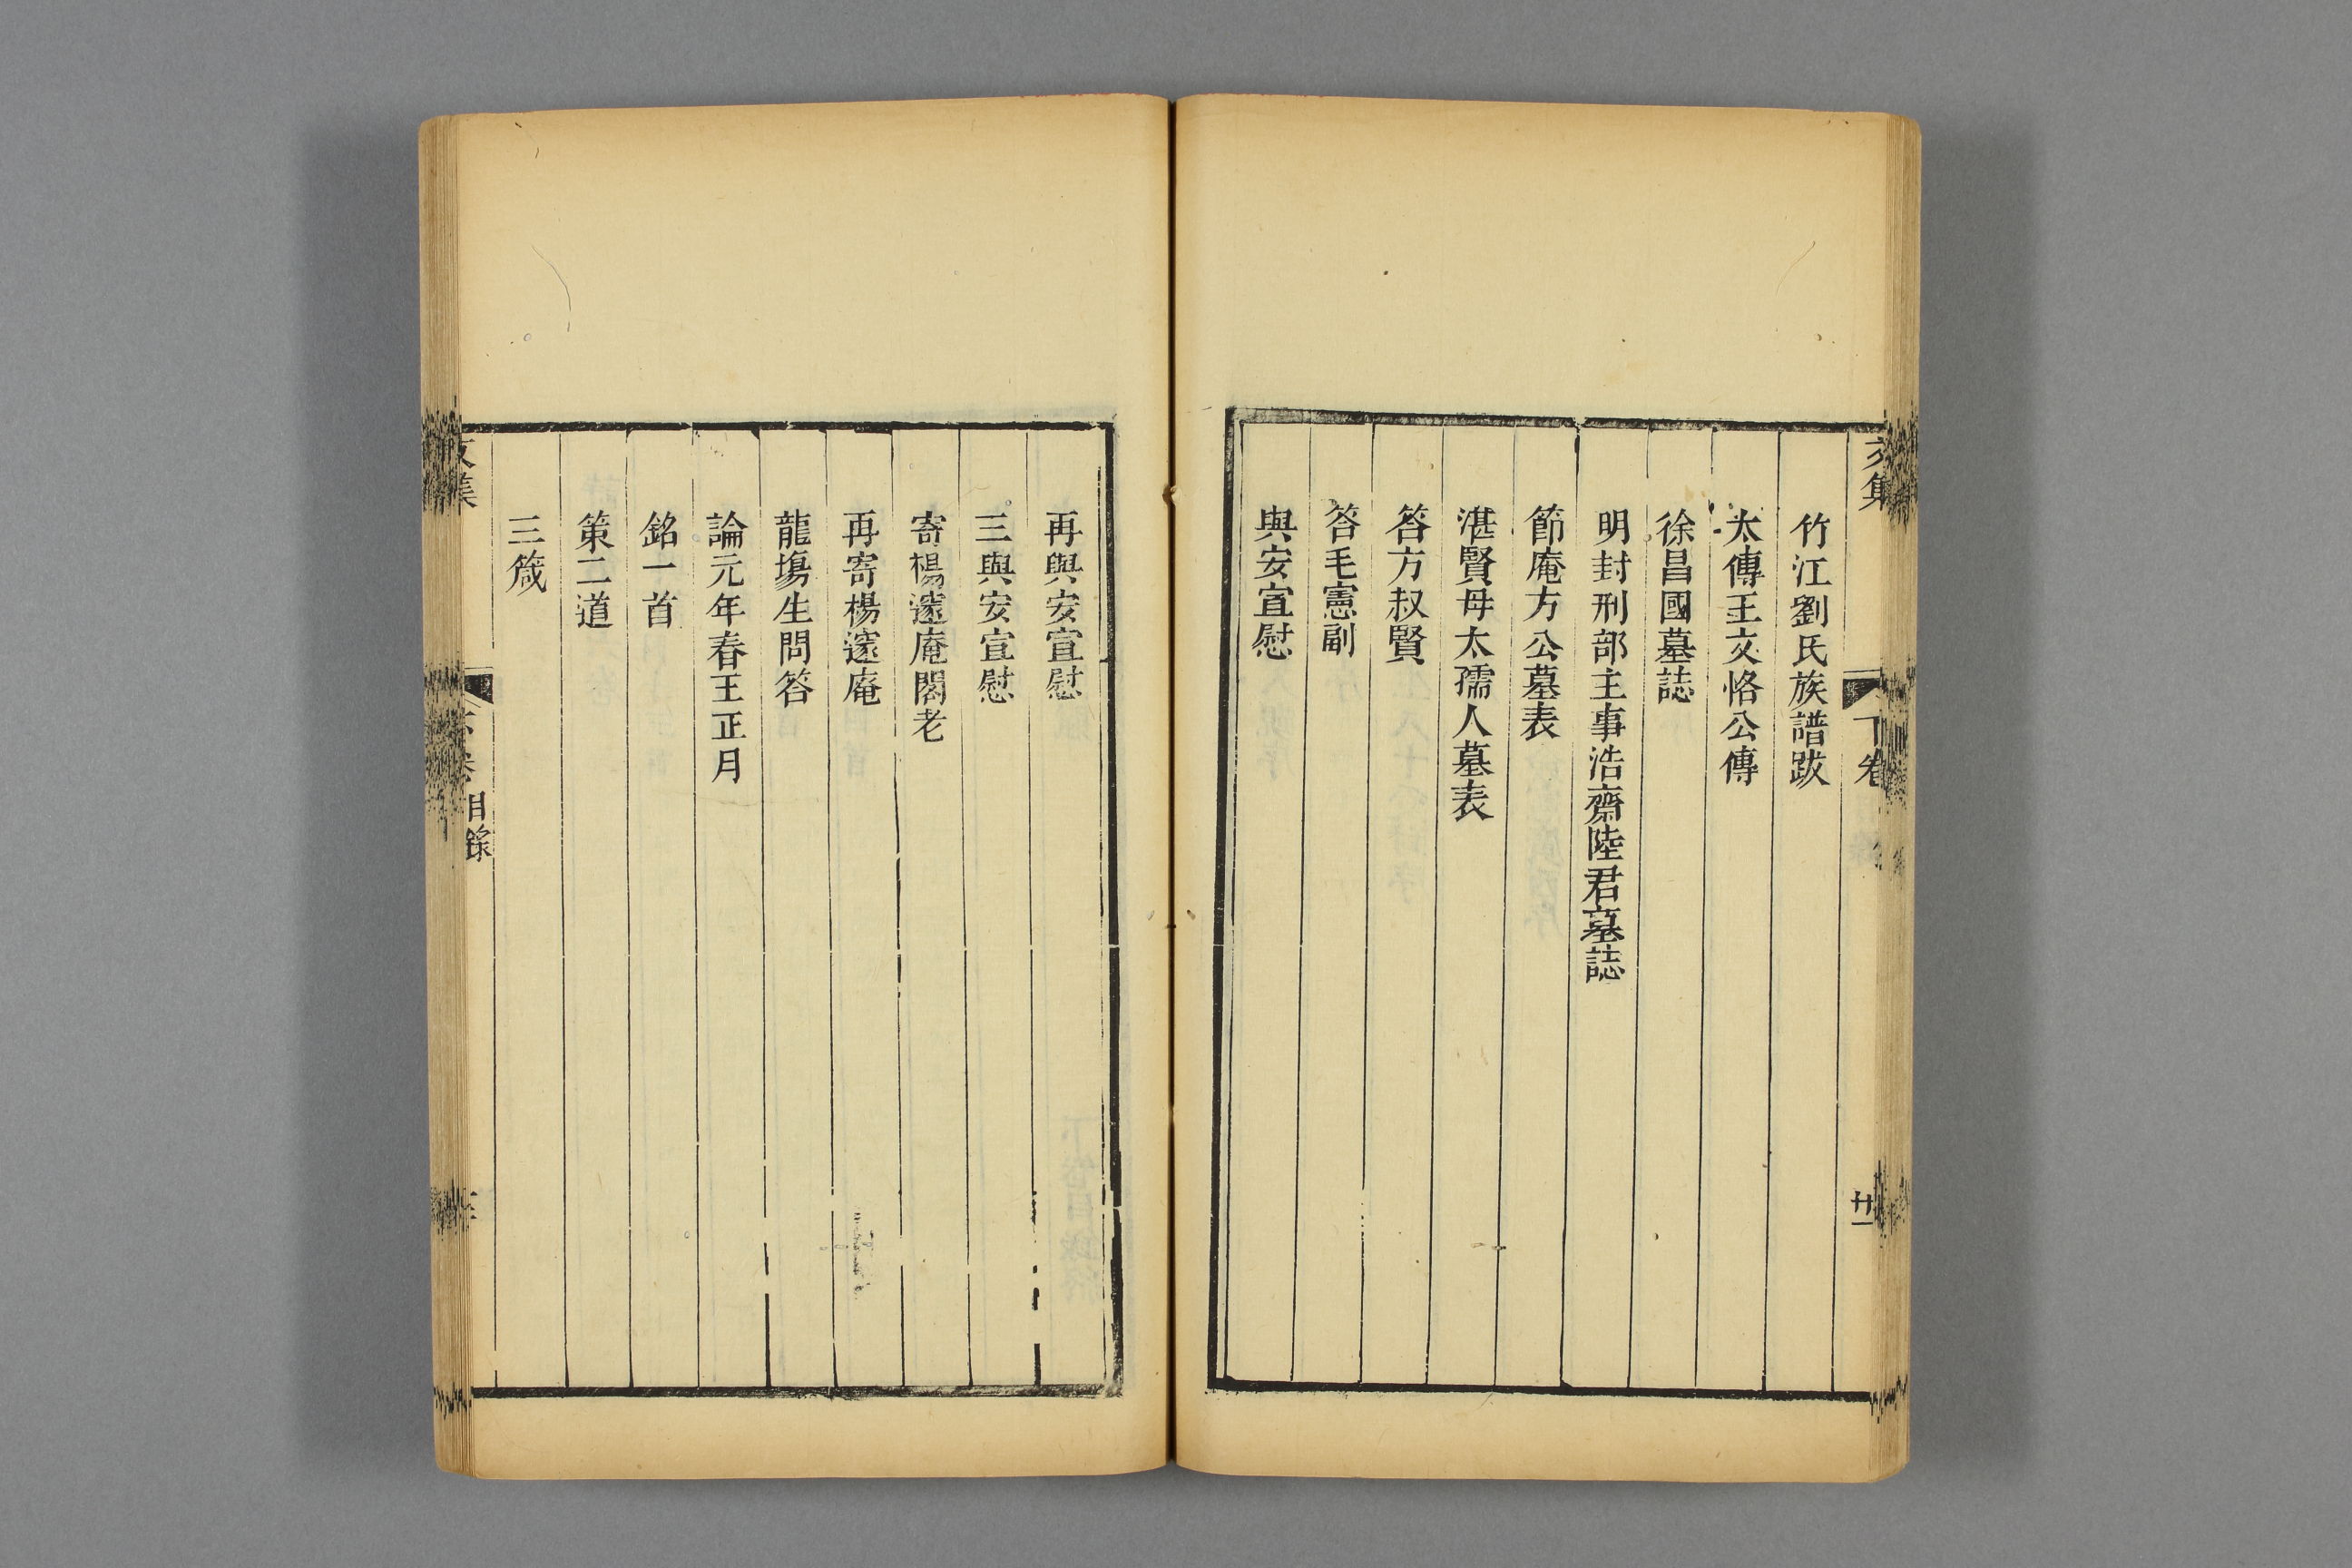 竹江劉氏族譜跋
太傅王文恪公傳
徐昌國墓誌
明封刑部主事浩齋陸君墓誌
節庵方公墓表
湛賢母太孺人墓表
答方叔賢
答毛憲副
與安宣慰
文集
下卷
廿一
再與安宣慰
三與安宣慰
寄楊邃庵閣老
再寄楊邃庵
龍塲生問答
論元年春王正月
銘一首
策二道
三箴
文集
目錄